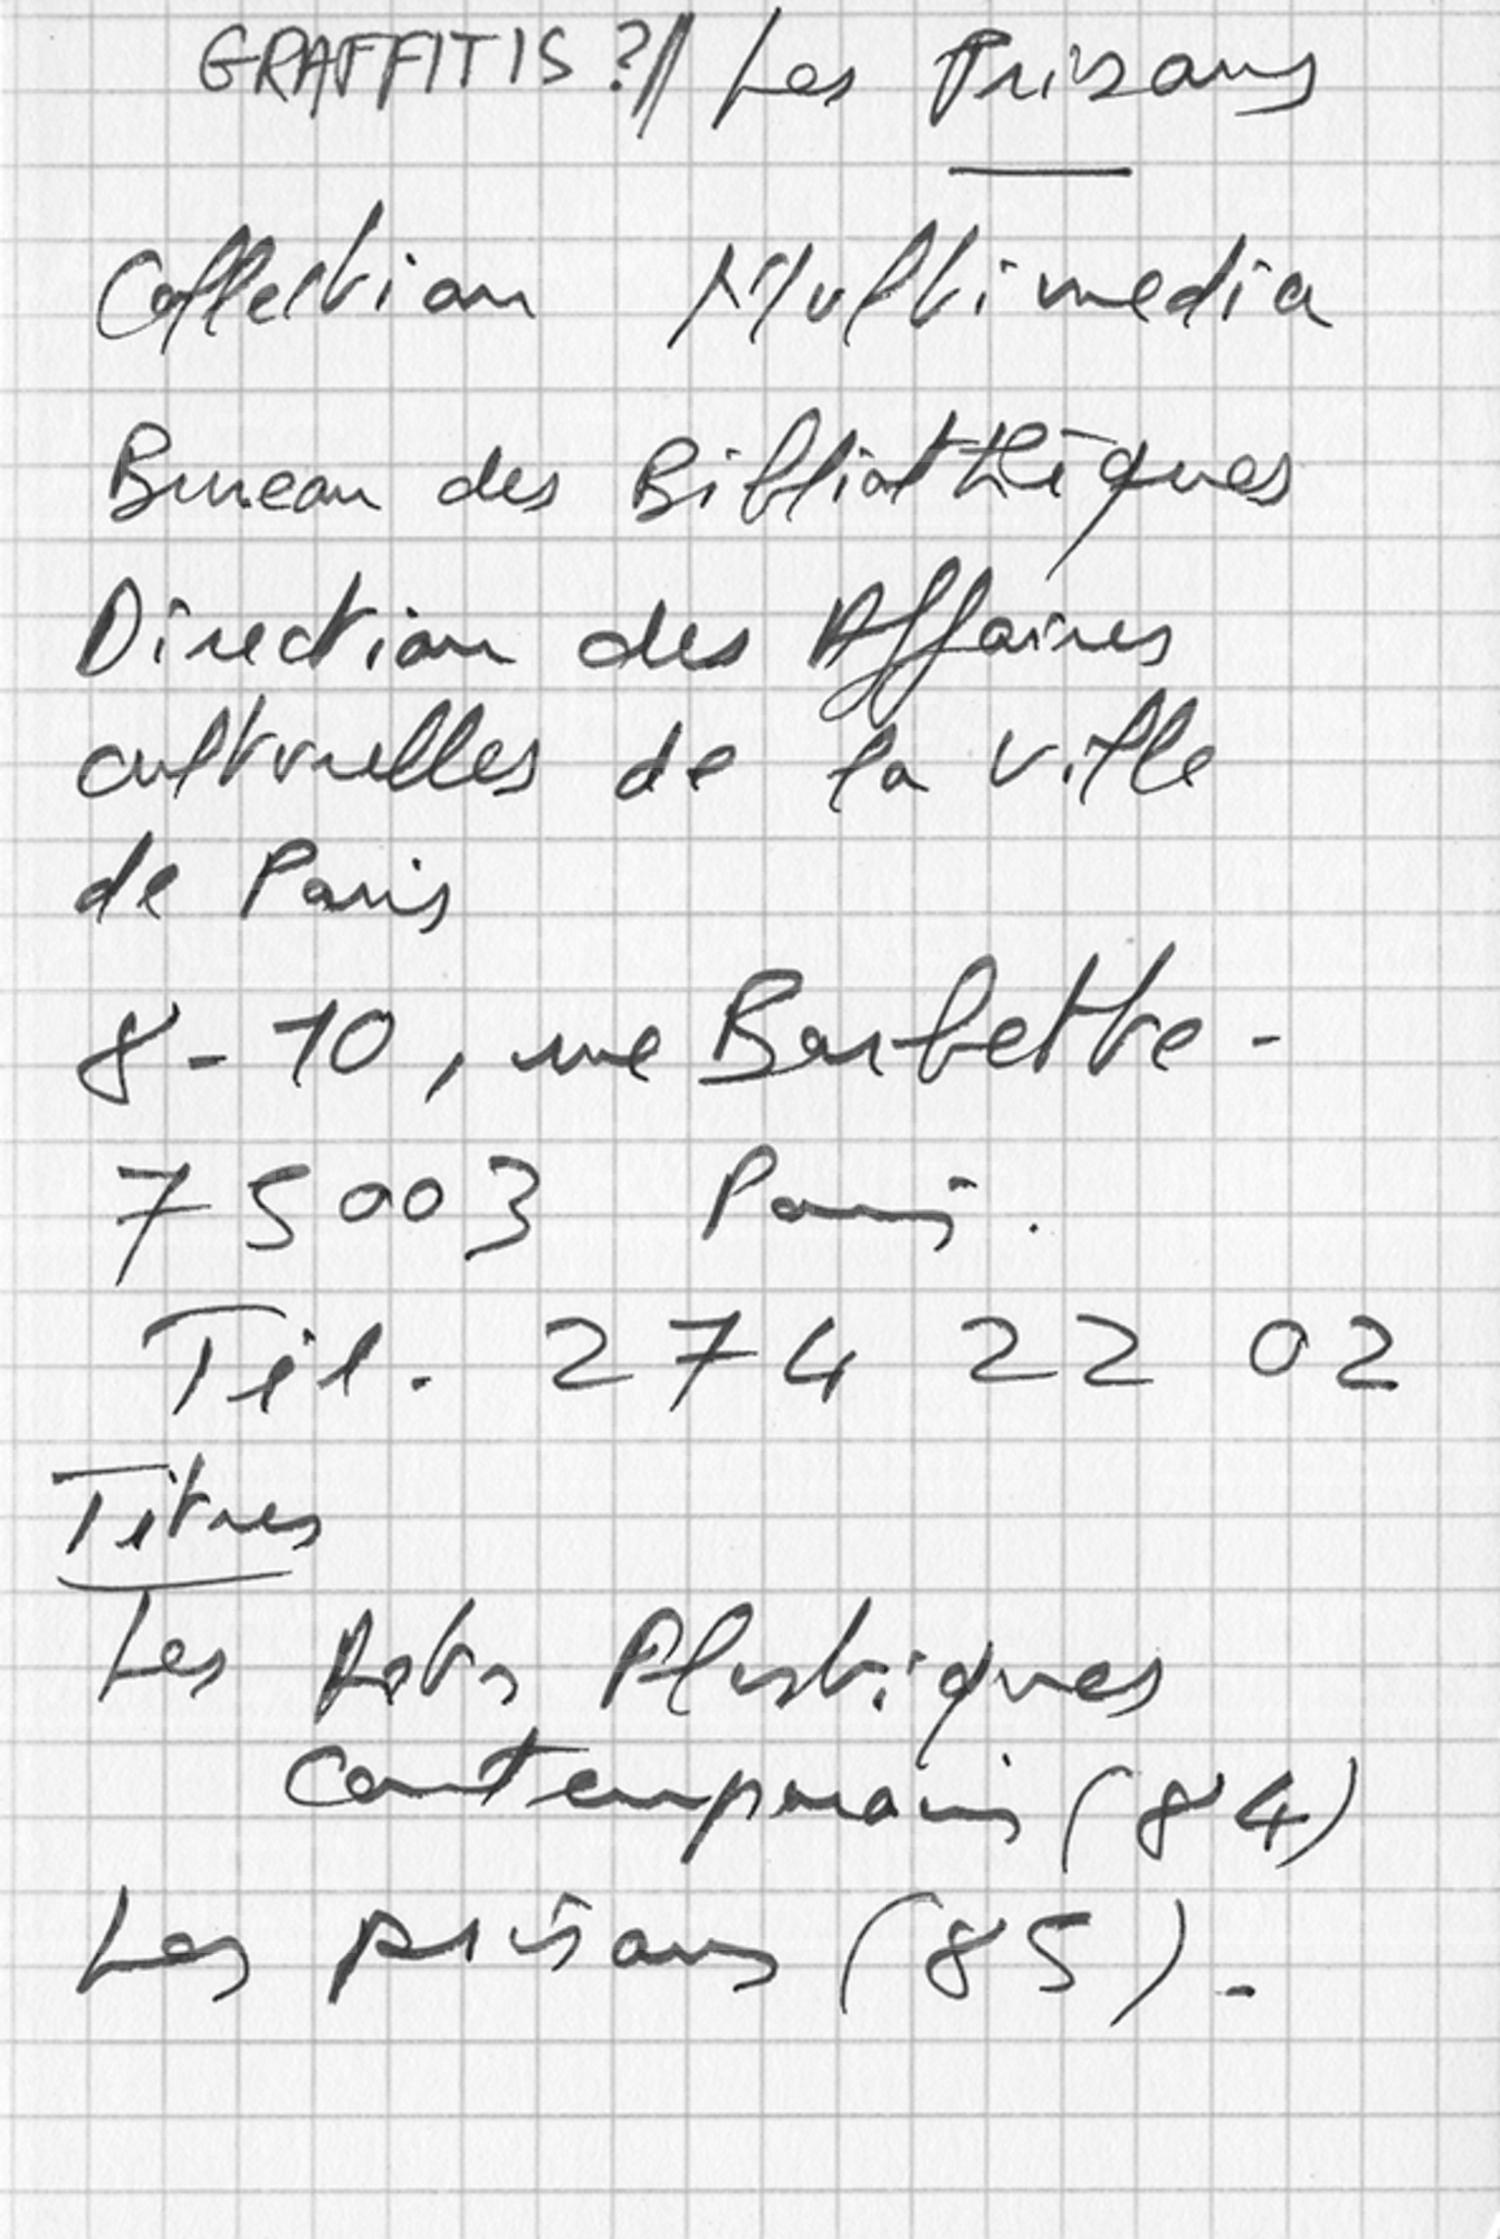 GRAFFITIS ? // Les Prisons
Collection Multimedia
Bureau des Bibliothèques
Direction des Affaires
culturelles de la ville
de Paris
8-10, rue Barbette -
75003 Paris.
Tél. 274 22 02
Titres
Les Arts Plastiques
Contemporains (84)
Les prisons (85).-